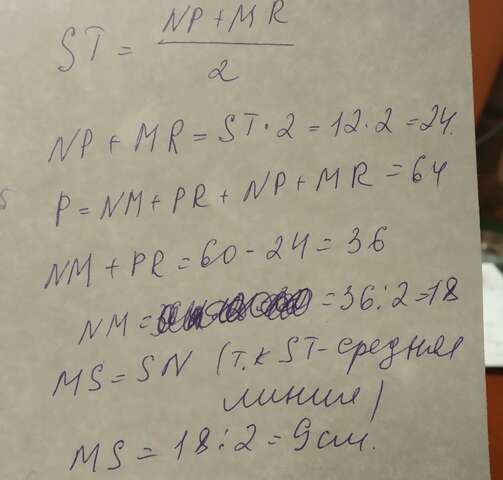 ST = NP+MR / 2
NP + MR = ST·2 = 12·2 = 24.
P = NM + PR + NP + MR = 64
NM + PR = 60 - 24 = 36
NM = = 36:2 = 18
MS = SN (т.к ST - средняя
линия)
MS = 18:2 = 9см.